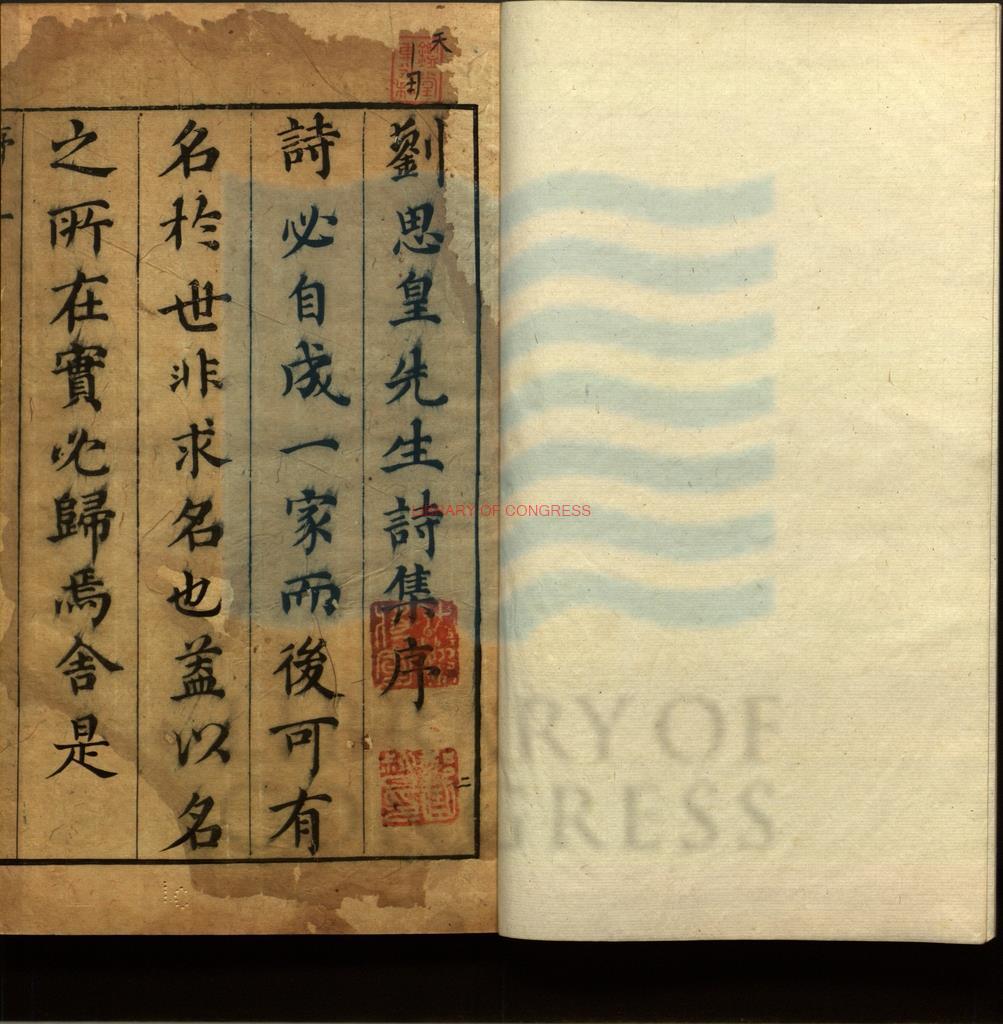 劉思皇先生詩集序
詩必自成一家而後可有
名於世非求名也盖以名
之所在實必歸焉舍是
序
一
天
二
LIBRARY OF CONGRESS
RY OF
GRESS